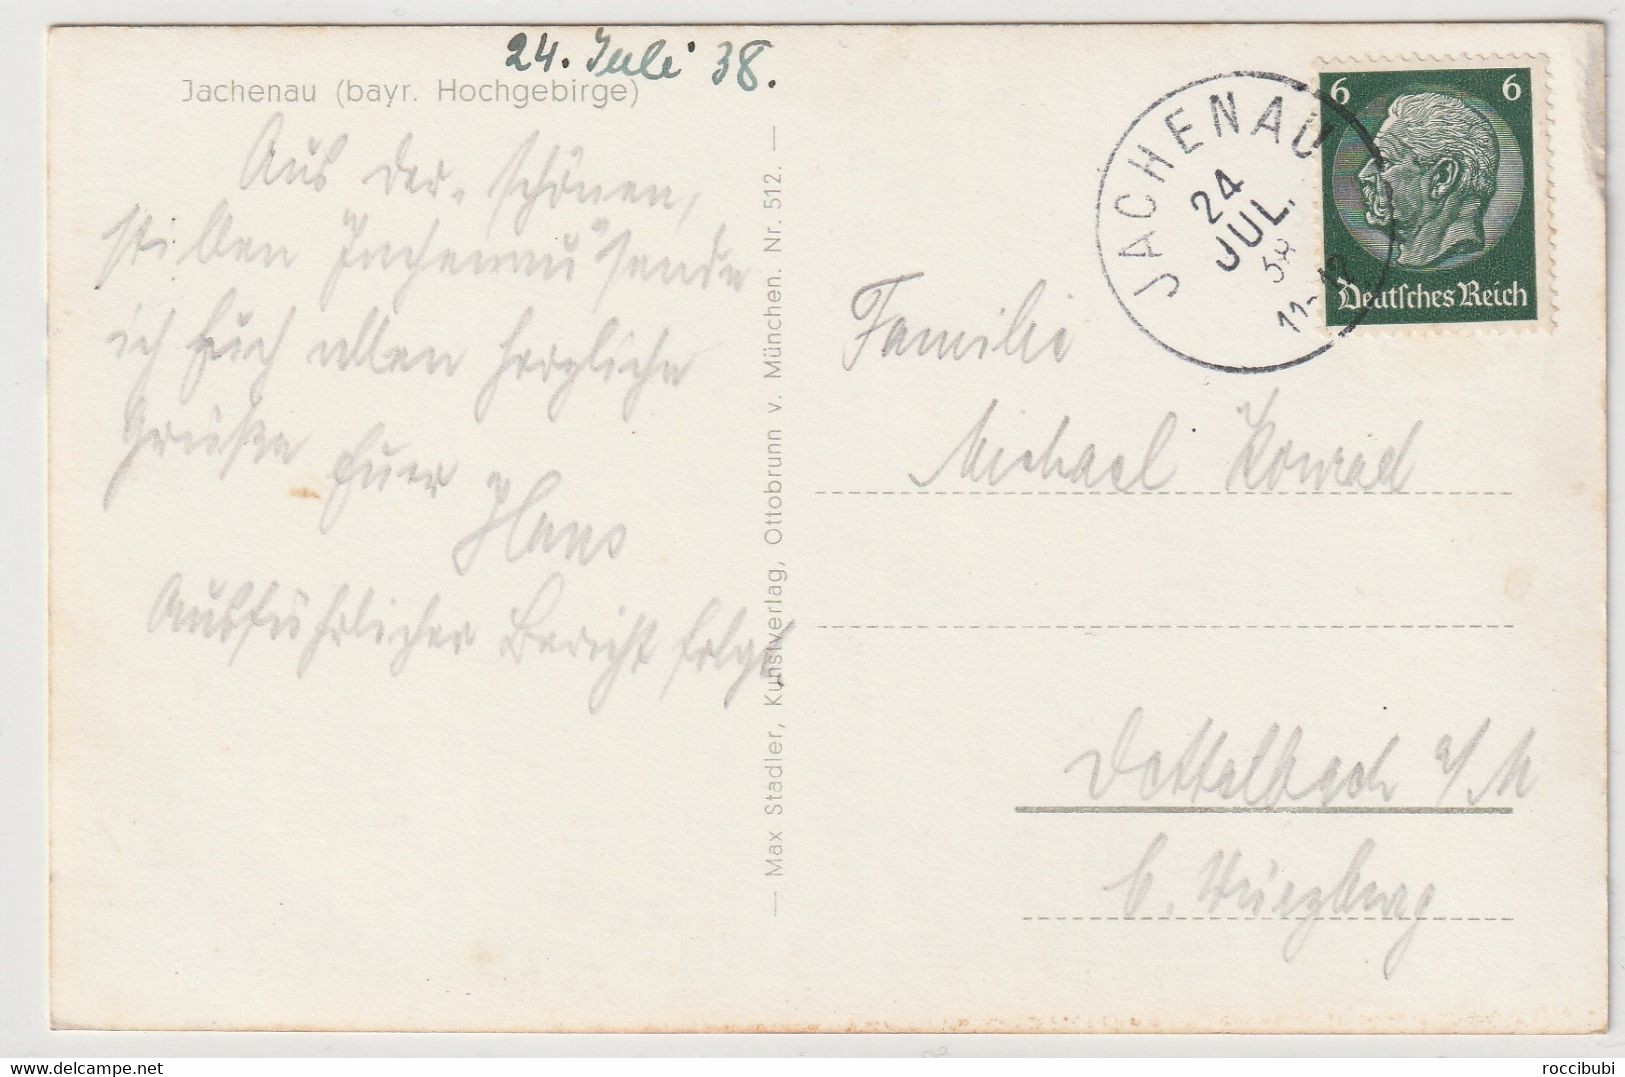 24. Juli 38.
Jachenau (bayr. Hochgebirge)
Aus der schönen,
stillen Jachenau sende
ich Euch allen herzliche
Grüße Euer
Hans
Ausführlicher Bericht folgt
— Max Stadler, Kunstverlag, Ottobrunn v. München. Nr. 512. —
JACHENAU
24
JUL.
38
11-12
6 6
Deutsches Reich
Familie
Michael Konrad
Dettelbach a/M
b. Würzburg
www.delcampe.net
roccibubi